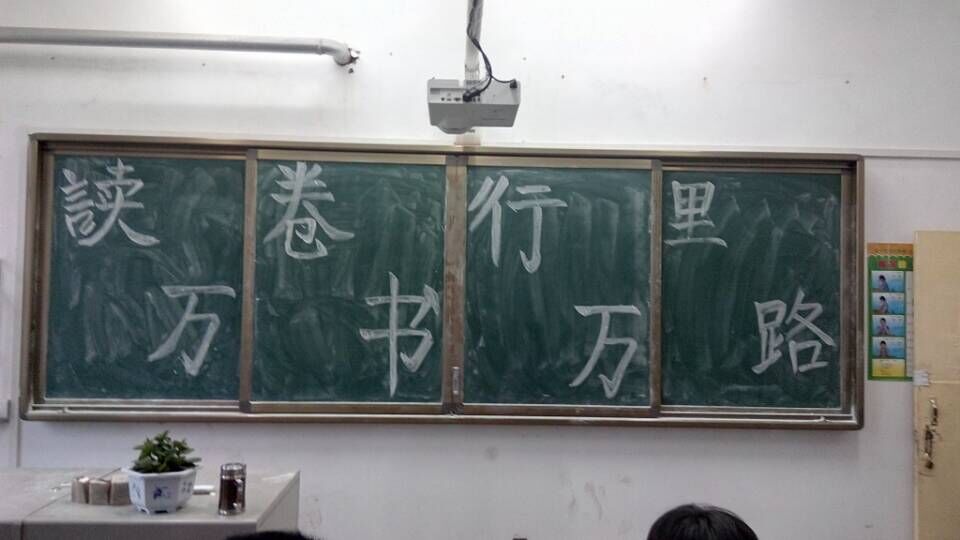 读万卷书行万里路